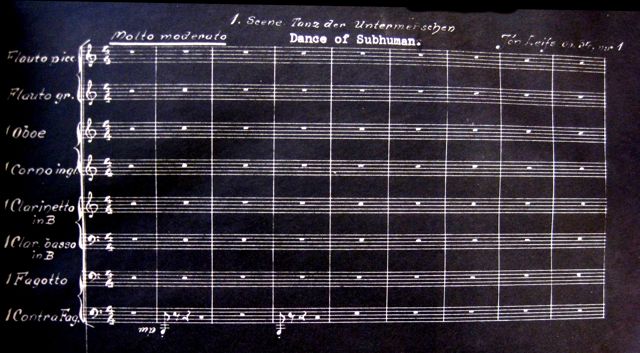 1. Scene Tanz der Untermenschen
Molto moderato
Dance of Subhuman.
Jón Leifs op. nr 1
Flauto picc
Flauto gr.
1 Oboe
1 Corno ingl
1 Clarinetto
in B
1 Clar. basso
in B
1 Fagotto
1 Contra Fag.